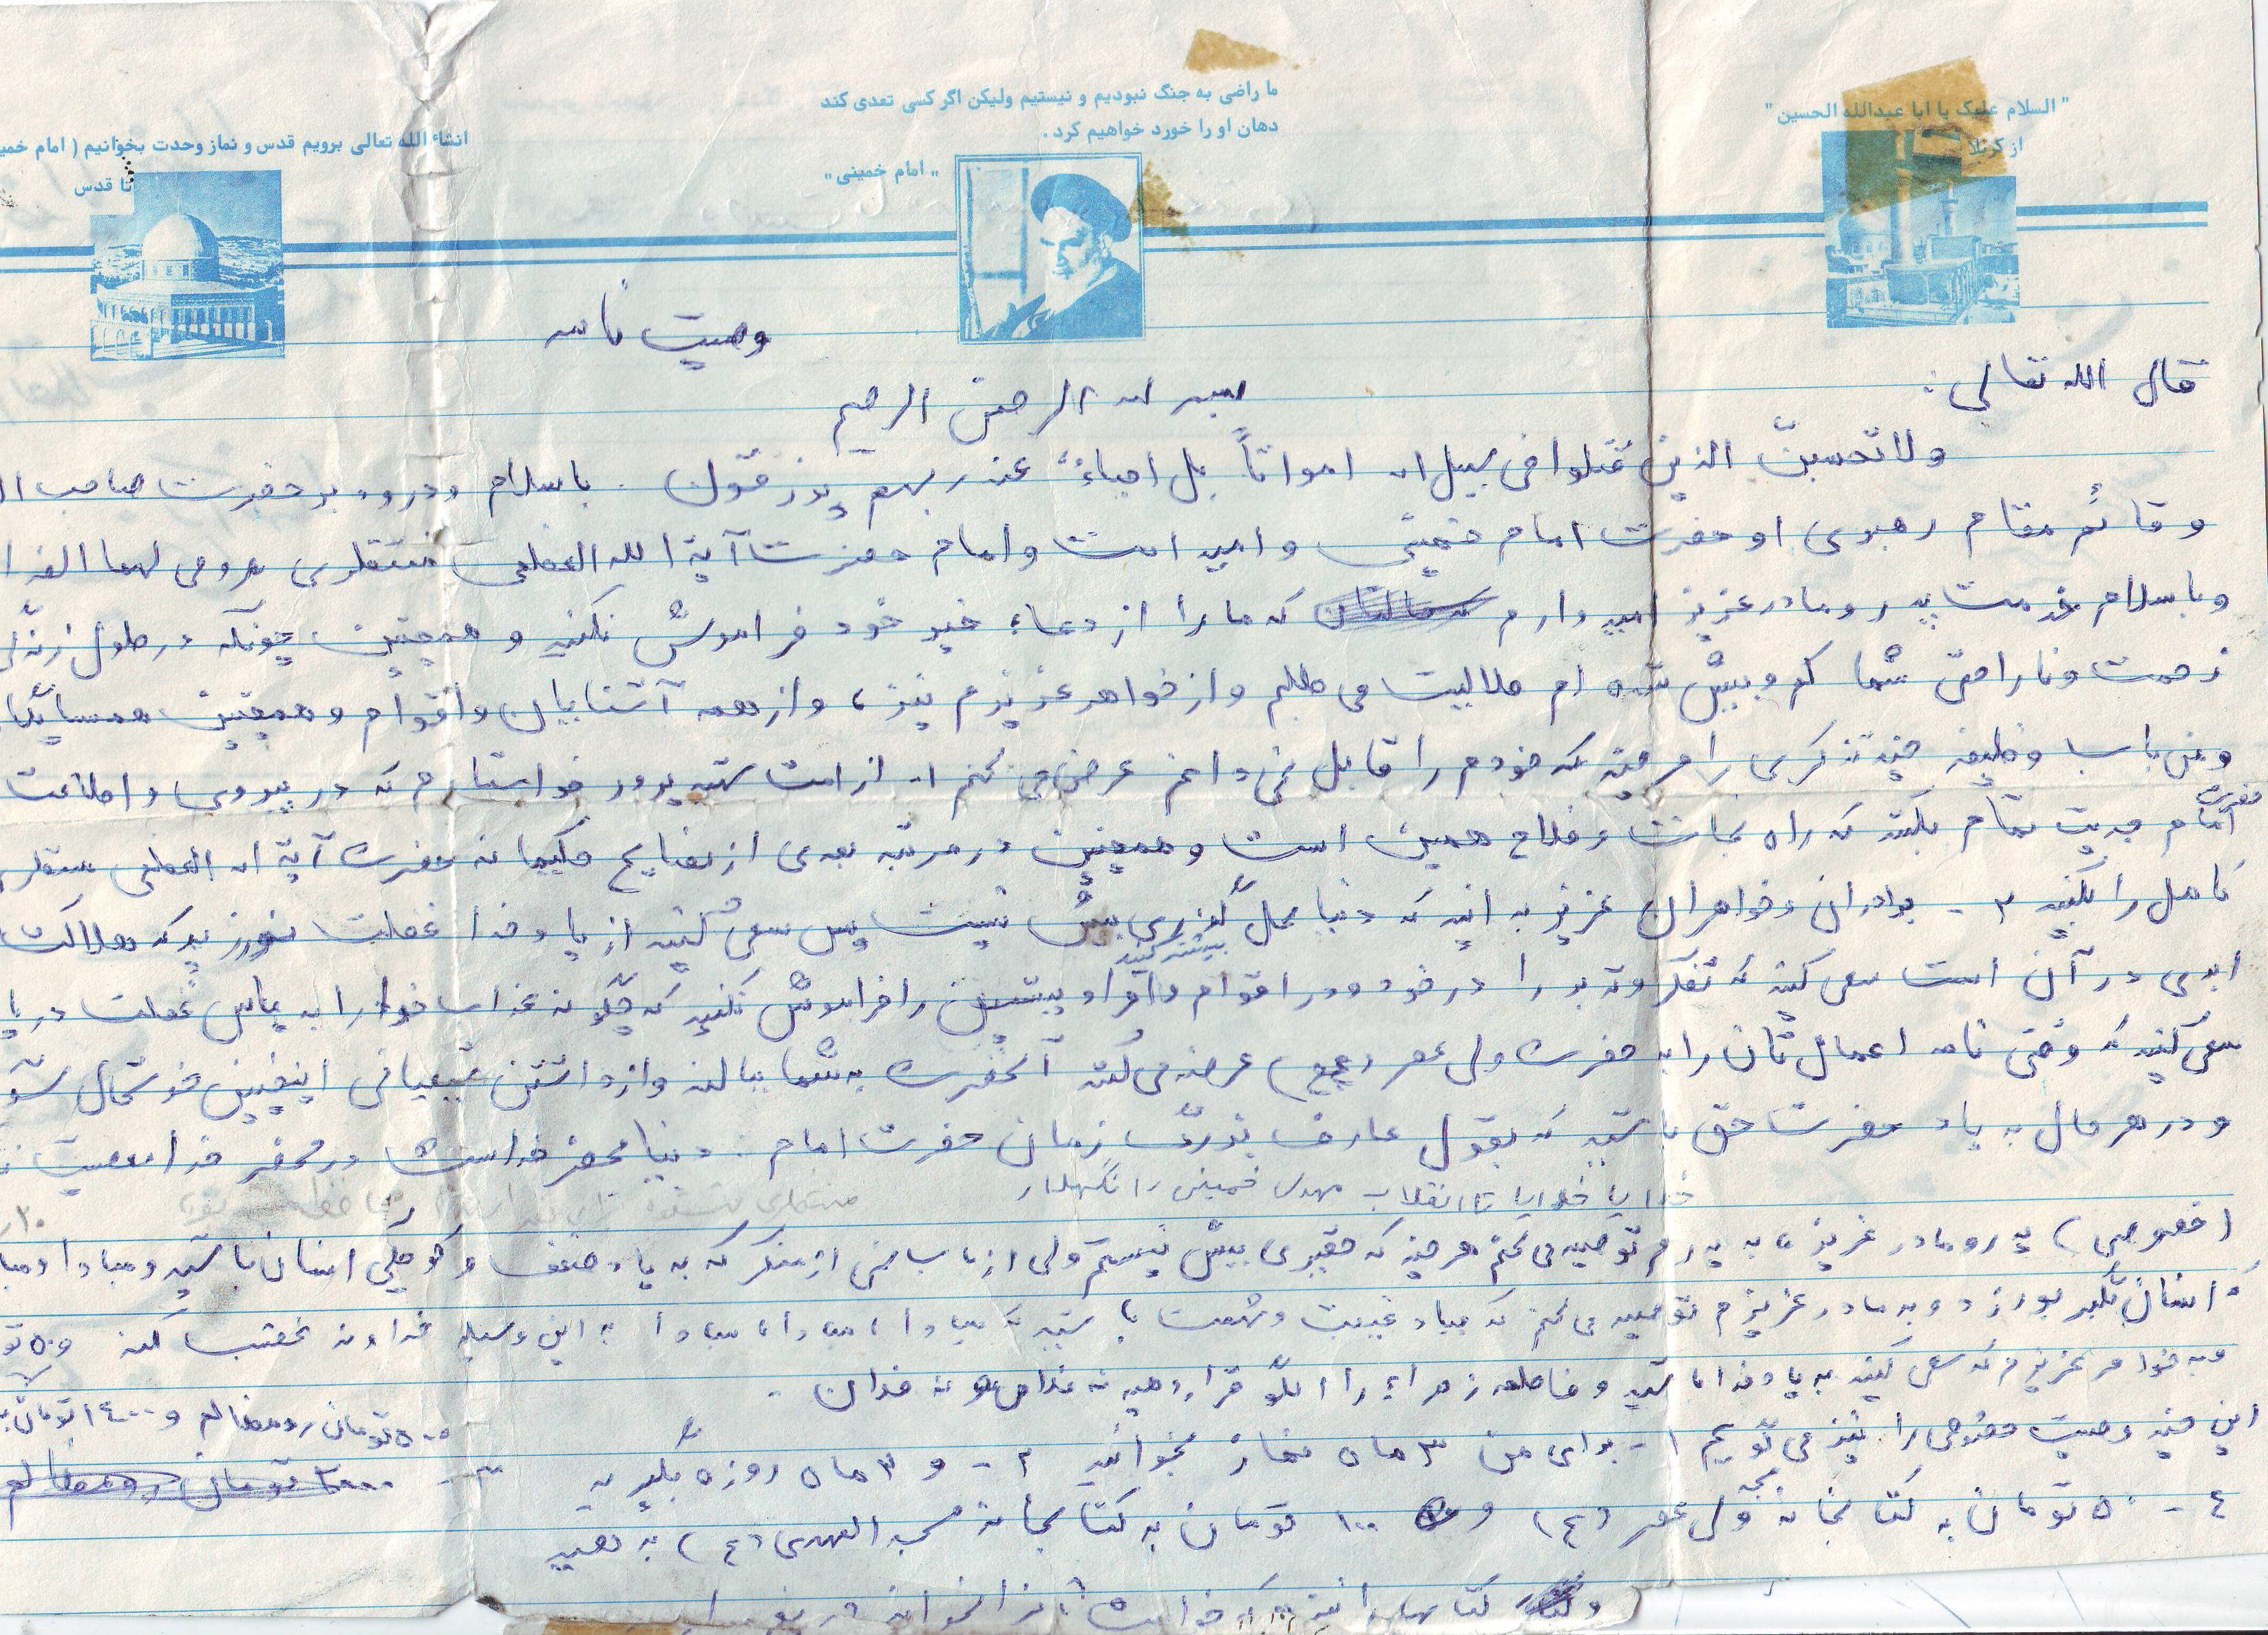 " السلام علیک یا ابا عبدالله الحسین "
از کربلا
ما راضی به جنگ نبودیم و نیستیم ولیکن اگر کسی تعدی کند
دهان او را خورد خواهیم کرد .
" امام خمینی "
انشاء الله تعالی برویم قدس و نماز وحدت بخوانیم ( امام خمی
تا قدس
وصیت نامه
قال الله تعالی :
بسم اله الرحمن الرحیم
ولا تحسبنّ الذین قتلوا فی سبیل اله امواتاً بل احیاءٌ عند ربهم یرزقون . باسلام و درود بر حضرت صاحب ال
و قائم مقام رهبری او حضرت امام خمینی و امید امت و امام حضرت آیة الله العظمی منتظری روحی لهما الفدا
و باسلام خدمت پدر و مادر عزیز امیدوارم که ما را از دعاء خیر خود فراموش نکنید و همچنین چونکه در طول زندگی
زحمت و ناراحتی شما کم و بیش شده ام حلالیت می طلبم و از خواهر عزیزم نیز ، و از همه آشنایان و اقوام و همچنین همسایگا
و من باب وظیفه چند تذکری را هر چند که خودم را قابل نمی دانم عرض می کنم ۱- از امت شهید پرور خواستارم که در پیروی و اطاعت
حضرت امام جدیت تمام بکنند که راه نجات و فلاح همین است و همچنین در مرتبه بعدی از نصایح حکیمانه حضرت آیة اله العظمی منتظری
کامل را بکنید ۲ - برادران و خواهران عزیز بدانید که دنیا محل گذری بیش نیست پس سعی کنید از یاد خدا غفلت نورزید که هلاکت
ابدی در آن است سعی کنید که تفکر و تدبر را در خود بیشتر کنید و در اقوام و افراد پیشین را فراموش نکنید که چگونه عذاب خدا را به پاس غفلت دریا
سعی کنید که وقتی نامه اعمال تان را به حضرت ولی عصر (عج) عرضه می کنند آنحضرت به شما ببالند و از داشتن شیعیانی اینچنین خوشحال شو
و در هر حال به یاد حضرت حق باشید که بقول عارف بزرگ زمان حضرت امام : دنیا محضر خداست در محضر خدا معصیت ن
خدایا خدایا تا انقلاب مهدی خمینی را نگهدار
(خصوصی) پدر و مادر عزیز ، به پدرم توصیه می کنم هر چند که حقیری بیش نیستم ولی از باب نهی از منکر که به یاد ضعف و کوچکی انسان باشید و مبادا و مبا
که انسان تکبر بورزد و به مادر عزیزم توصیه می کنم که بیاد غیبت و تهمت باشید که مبادا ، مبادا ، مبادا به این وسیله خداوند غضب کند
و به خواهر عزیزم که سعی کنید به یاد خدا باشید و فاطمه زهراء را الگو قرار دهید نه
این چند وصیت خصوصی را نیز می گویم ۱- برای من ۳ ماه نماز بخوانید ۲ - و ۳ ماه روزه بگیرید ۳ -
۵۰۰ تومان رد مظالم و ۱۴۰۰۰ تومان
۴ - ۵۰ تومان به کتابخانه ولی عصر (ع) و ۱۰۰ تومان به کتابخانه مسجد المهدی (ع) بدهید